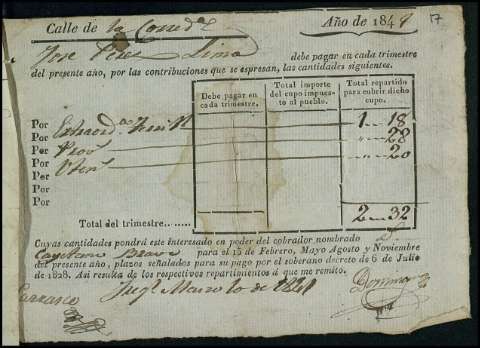 Calle de la Corred.ª Año de 1841 17
José Perez Lima debe pagar en cada trimestre
del presente año, por las contribuciones que se espresan, las cantidades siguientes.
Debe pagar en cada trimestre.
Total importe del cupo impuesto al pueblo.
Total repartido para cubrir dicho cupo.
Por Extraord.
1 18
Por Prov.
" 28
Por Uten.
" 20
Por
Por
Por
Total del trimestre........ 2 32
Cuyas cantidades pondrá este interesado en poder del cobrador nombrado
Cayetano Bravo para el 15 de Febrero, Mayo Agosto y Noviembre
del presente año, plazos señalados para su pago por el soberano decreto de 6 de Julio
de 1828. Asi resulta de los respectivos repartimientos á que me remito.
Marzo 10 de 1841
Carrasco